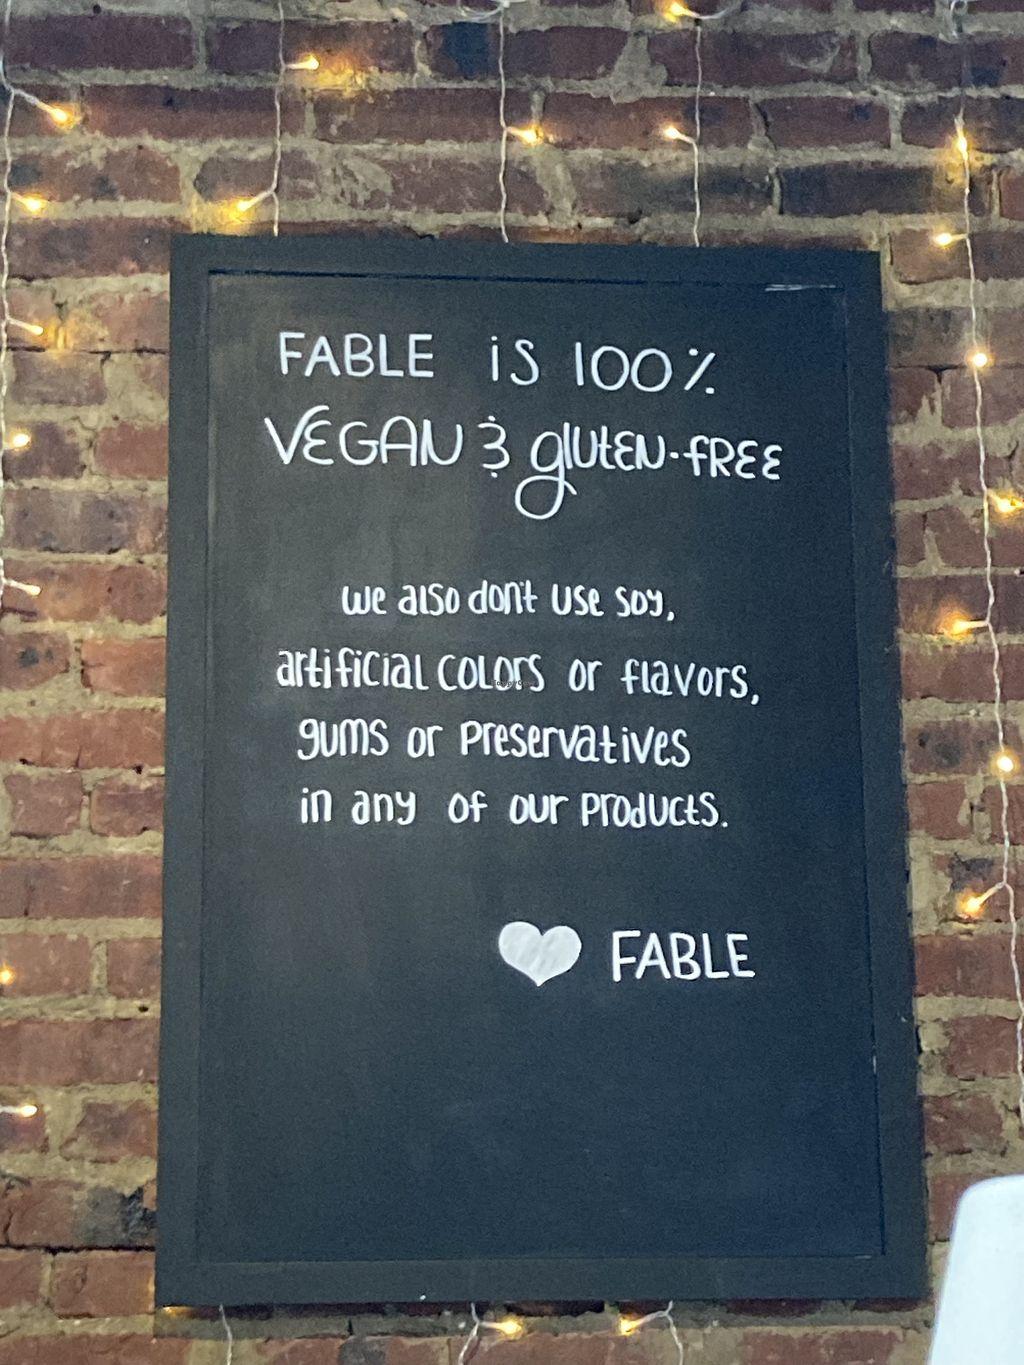 FABLE iS 100%
VEGAN & glUtEN-fREE
we also don't use soy,
artificial colors or flavors,
gums or preservatives
in any of our products.
♥ FABLE